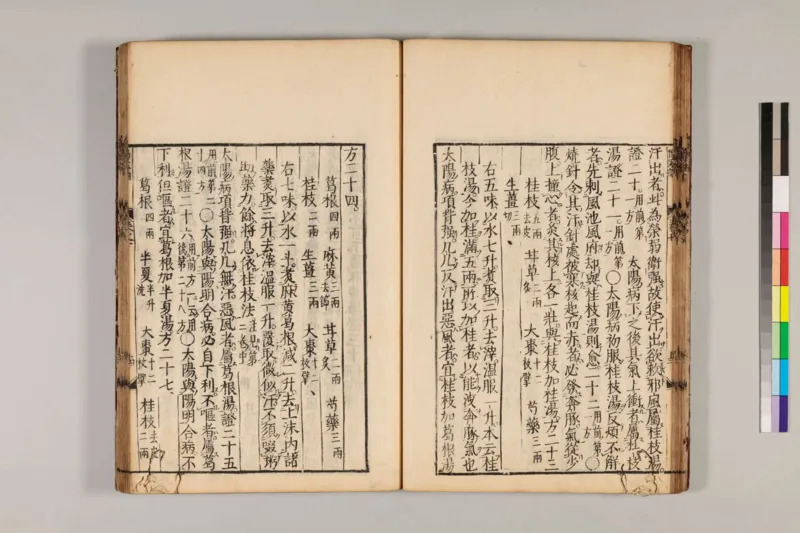 汗出者此為榮弱衛強故使汗出欲救邪風屬桂枝湯
證二十用前第一方 太陽病下之後其氣上衝者屬桂枝
湯證二十一用前第一方 ○太陽病初服桂枝湯反煩不解
者先刺風池風府却與桂枝湯則愈二十二用前第一方 ○
燒針令其汗針處被寒核起而赤者必發奔豚氣從少
腹上撞心者灸其核上各一壯與桂枝加桂湯方二十三
桂枝五兩去皮 甘草二兩 大棗十二枚擘 芍藥三兩
生薑三兩切
右五味以水七升煮取三升去滓溫服一升本云桂
枝湯今加桂滿五兩所以加桂者以能洩奔豚氣也
太陽病項背強几几反汗出惡風者宜桂枝加葛根湯
方二十四
葛根四兩 麻黃三兩去節 甘草二兩炙 芍藥三兩
桂枝二兩 生薑三兩 大棗十二枚擘
右七味以水一斗煮麻黃葛根減二升去上沫内諸
藥煮取三升去滓溫服一升覆取微似汗不須啜粥
助藥力餘將息依桂枝法
太陽病項背強几几無汗惡風者屬葛根湯證二十五
用前第二十四方 ○太陽與陽明合病必自下利不嘔者屬葛
根湯證二十六用前方一云用後第二十八方 ○太陽與陽明合病不
下利但嘔者宜葛根加半夏湯方二十七
葛根四兩 半夏半升洗 大棗十二枚擘 桂枝去皮二兩